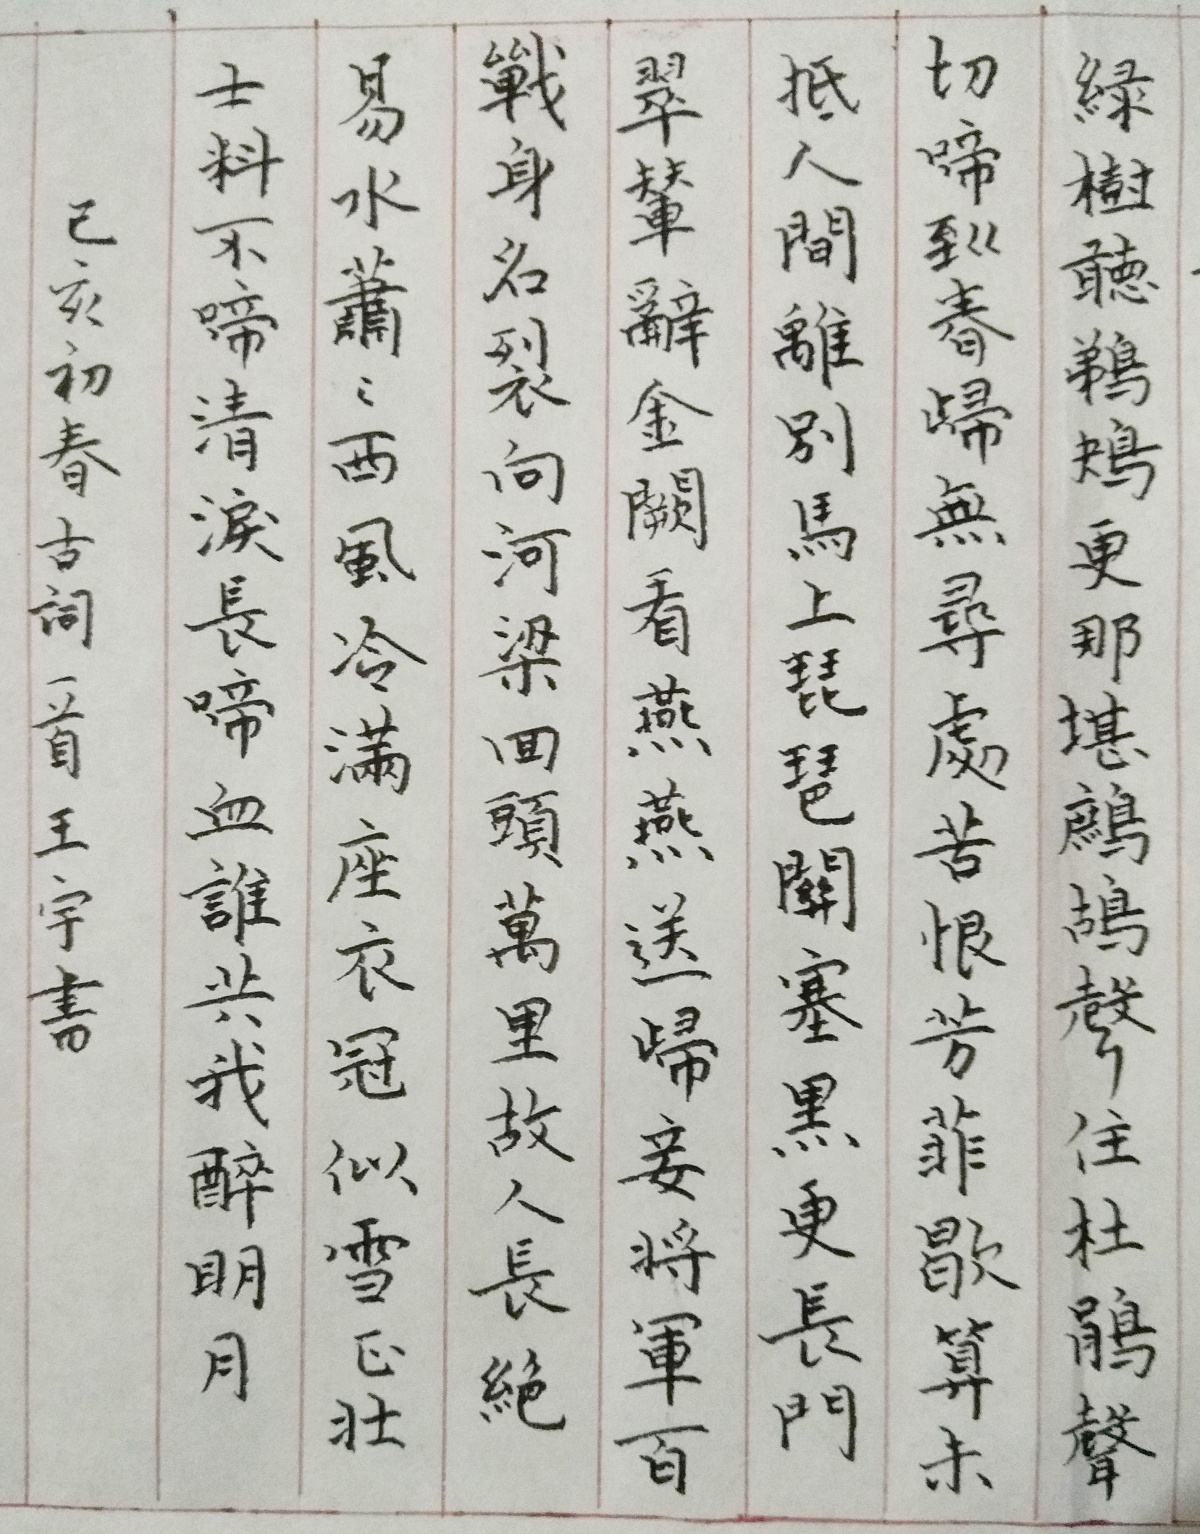 綠樹聽鵜鴂更那堪鷓鴣聲住杜鵑聲
切啼到春歸無尋處苦恨芳菲歇算未
抵人間離別馬上琵琶關塞黑更長門
翠輦辭金闕看燕燕送歸妾將軍百
戰身名裂向河梁回頭萬里故人長絕
易水蕭〻西風冷滿座衣冠似雪正壯
士料不啼清淚長啼血誰共我醉明月
己亥初春古詞一首王宇書